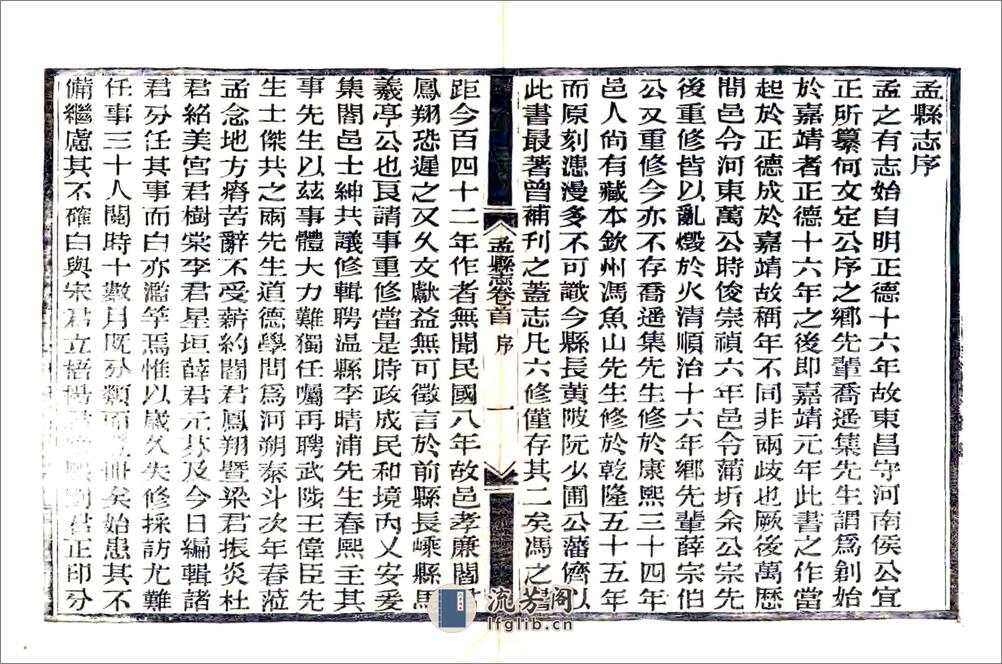 孟縣志序
孟之有志始自明正德十六年故東昌守河南侯公宜
正所纂何文定公序之鄉先輩喬遜集先生謂爲創始
於嘉靖者正德十六年之後即嘉靖元年此書之作當
起於正德成於嘉靖故稱年不同非兩歧也厥後萬歷
間邑令河東萬公時俊崇禎六年邑令蒲圻余公宗先
後重修皆以亂燬於火清順治十六年鄉先輩薛宗伯
公又重修今亦不存喬遜集先生修於康熙三十四年
邑人尚有藏本欽州馮魚山先生修於乾隆五十五年
而原刻漶漫多不可識今縣長黃陂阮少圃公藩儕以
此書最著曾補刊之蓋志凡六修僅存其二矣馮之書
孟縣志卷首 序 一
距今百四十二年作者無聞民國八年故邑孝廉閻
鳳翔恐遲之又久文獻益無可徵言於前縣長嵊縣馬
羲亭公也艮請事重修當是時政成民和境內乂安爰
集闔邑士紳共議修輯聘温縣李晴浦先生春熙主其
事先生以茲事體大力難獨任囑再聘武陟王偉臣先
生士傑共之兩先生道德學問爲河朔泰斗次年春蒞
孟念地方瘠苦辭不受薪約閻君鳳翔暨梁君振炎杜
君絡美宮君樹棠李君星垣薛君元芬及今日編輯諸
君分任其事而白亦濫竽焉惟以歲久失修採訪尤難
任事三十人閱時十數月既分類而冊矣始患其不
備繼慮其不確白與宋君立梧楊君正印分
流芳阁
lfglib.cn